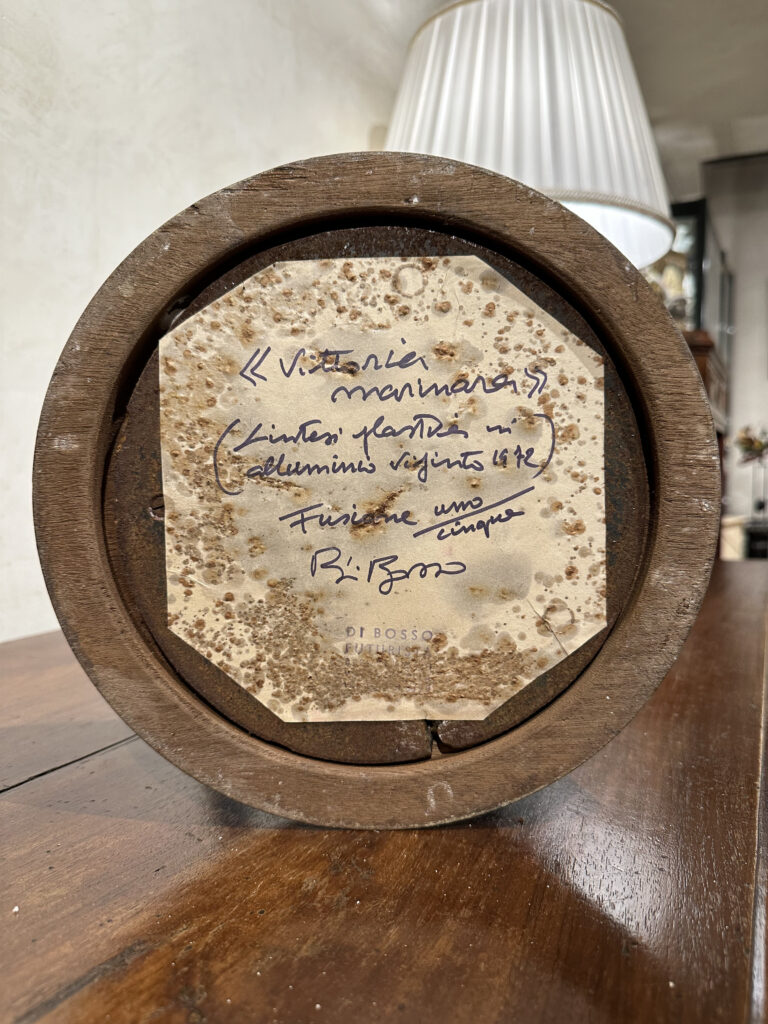 «Vittoria
marinara»
(Sintesi plastica in
alluminio
Fusione uno
cinque
Di Bosso
DI BOSSO
FUTURISTA